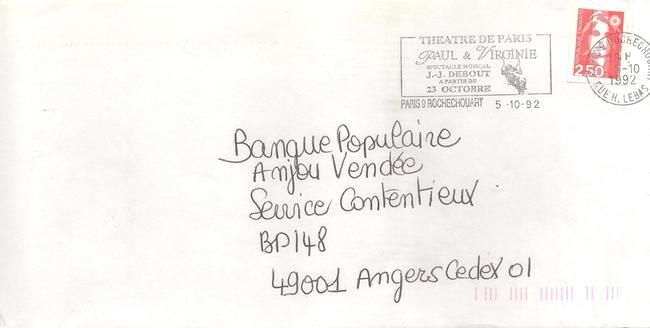 THEATRE DE PARIS
PAUL & VIRGINIE
SPECTACLE MUSICAL
J-J. DEBOUT
A PARTIR DU
23 OCTOBRE
PARIS 9 ROCHECHOUART 5-10-92
2,50
ROCHECHOUART
5-10
1992
RUE H. LEBAS
Banque Populaire
Anjou Vendée
Service Contentieux
BP 148
49001 Angers Cedex 01